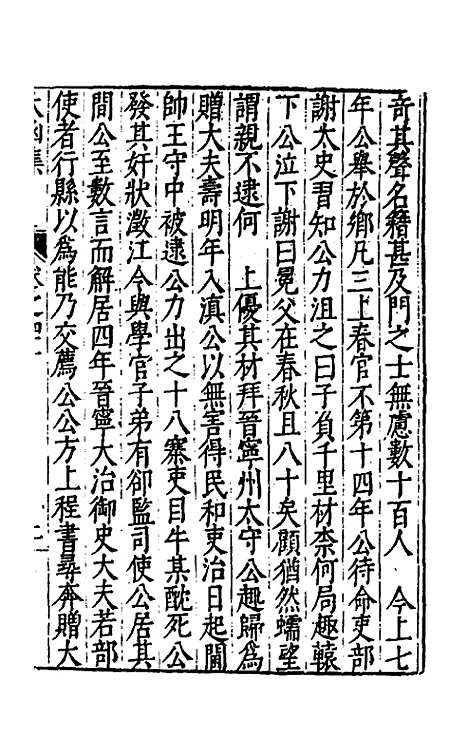 奇其聲名籍甚及門之士無慮數十百人　今上七
年公舉於鄉凡三上春官不第十四年公待命吏部
謝太史習知公力沮之曰子負千里材柰何局趣轅
下公泣下謝曰冕父在春秋且八十矣顧猶然蠕望
謂親不逮何　上優其材拜晉寧州太守公趣歸為
贈大夫壽明年入滇公以無害得民和吏治日起閫
帥王守中被逮公力出之十八寨吏目牛某酖死公
發其奸狀澂江令與學官子弟有卻監司使公居其
間公至數言而解居四年晉寧大治御史大夫若部
使者行縣以為能乃交薦公公方上程書尋奔贈大
太函集　卷之四十